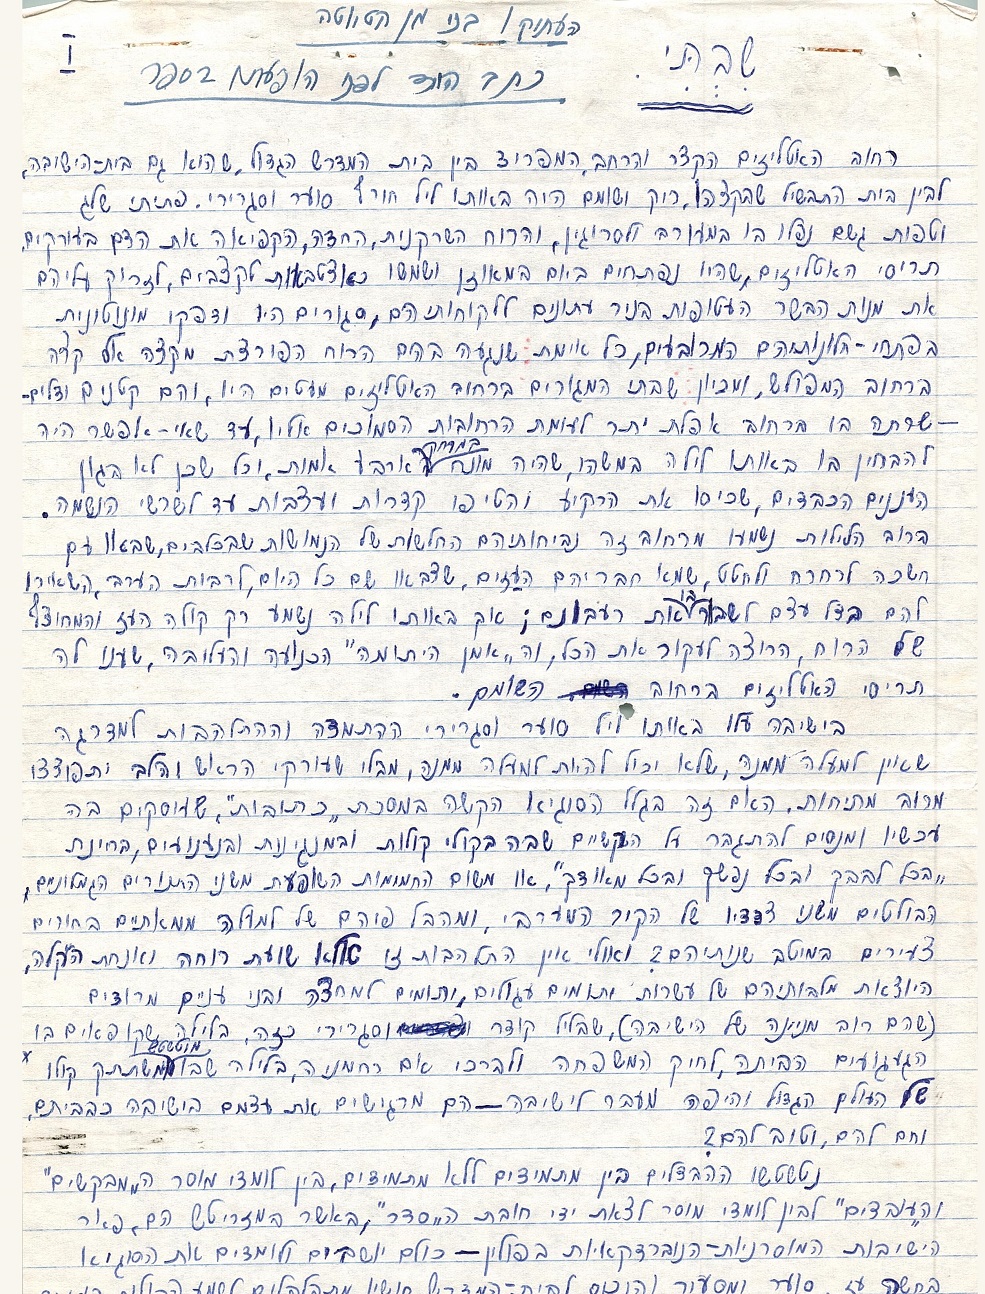 העתיק / בני מן הטיוטה
I
שבתי
כתב היד לפני הופעתו בספר
רחוב האטליזים הקצר והרחב, המפריד בין בית המדרש הגדול, שהוא גם בית-הישיבה,
לבין בית התבשיל שבקצהו, ריק ושומם היה באותו ליל חורף סוער וסגרירי. פתיתי שלג
וטפות גשם נפלו בו במעורב ולסרוגין, והרוח השרקנית, החדה, הקפיאה את הדם בעורקים.
תריסי האטליזים, שהיו נפתחים ביום במאוזן ושמשו כאצטבאות לקצבים, לזרוק עליהם
את מנות הבשר העטופות בניר עתונים ללקוחותיהם, סגורים היו ודפקו מונוטונית
בפתחי-חלונותיהם המרובעים, כל אימת שנגעה בהם הרוח הפורצת מקצה אל קצה
ברחוב המפולש, ומכיון שבתי המגורים ברחוב האטליזים מעטים היו, והם קטנים ודלים-
—שרתה בו ברחוב אפלת יתר לעומת הרחובות הסמוכים אליו, עד שאי-אפשר היה
להבחין בו באותו לילה במשהו, שהיה מונח במרחק ארבע אמות, וכל שכן לא בגון
העננים הכבדים, שכיסו את הרקיע והטיפו קדרות ועצבות עד לשרשי הנשמה.
ברוב הלילות נשמעו מרחוב זה נביחותיהם החלשות של הנמושות שבכלבים, שבאו עם
חשכה לרחרח ולחטט, שמא חבריהם העזים, שצבאו שם כל היום, לרבות הערב, השאירו
להם בדל עצם לשבור בו את רעבונם; אך באותו לילה נשמע רק קולה העז והמחוצף
של הרוח, הרוצה לעקור את הכל, וה„אמן היתומה" הכנועה והעליבה, שענו לה
תריסי האטליזים ברחוב השומם.
בישיבה עלו באותו ליל סוער וסגרירי ההתמדה וההתלהבות למדרגה
שאין למעלה ממנה, שלא יכול להיות למעלה ממנה, מבלי שעורקי הראש והלב יתפוצצו
מרוב מתיחות. האם זה בגלל הסוגיא הקשה במסכת „כתובות", שעוסקים בה
עכשיו ומנסים להתגבר על הקשיים שבה בקולי קולות ובמנגינות ובנענועים, בחינת
„בכל לבבך ובכל נפשך ובכל מאודך", או משום החמימות השופעת משני התנורים הגמלוניים,
הבולטים משני צדדיו של הקיר המערבי, ומהבל פיהם של למעלה ממאתיים בחורים
צעירים במיטב שנותיהם? ואולי אין התלהבות זו אלא שועת רוחה ואנחת הקלה,
היוצאות מלבותיהם של עשרות יתומים עגולים, יתומים למחצה ובני עניים מרודים
(שהם רוב מניינה של הישיבה), שבליל קודר וסגרירי כזה, בלילה שקופאים בו
הגעגועים הביתה, לחיק המשפחה ולברכי אם רחמניה, בלילה שבו מטשטש ומשתתק קולו
של העולם הגדול והיפה מעבר לישיבה—הם מרגישים את עצמם בישיבה כבביתם,
וחם להם, וטוב להם?
נטשטשו ההבדלים בין מתמידים ללא מתמידים, בין לומדי מוסר ה„מבקשים"
וה„עובדים" לבין לומדי מוסר לצאת ידי חובת ה„סדר", באשר במזריטש הם, פאר
הישיבות המוסרניות-הנוברדקאיות בפולין—כולם יושבים ולומדים את הסוגיא